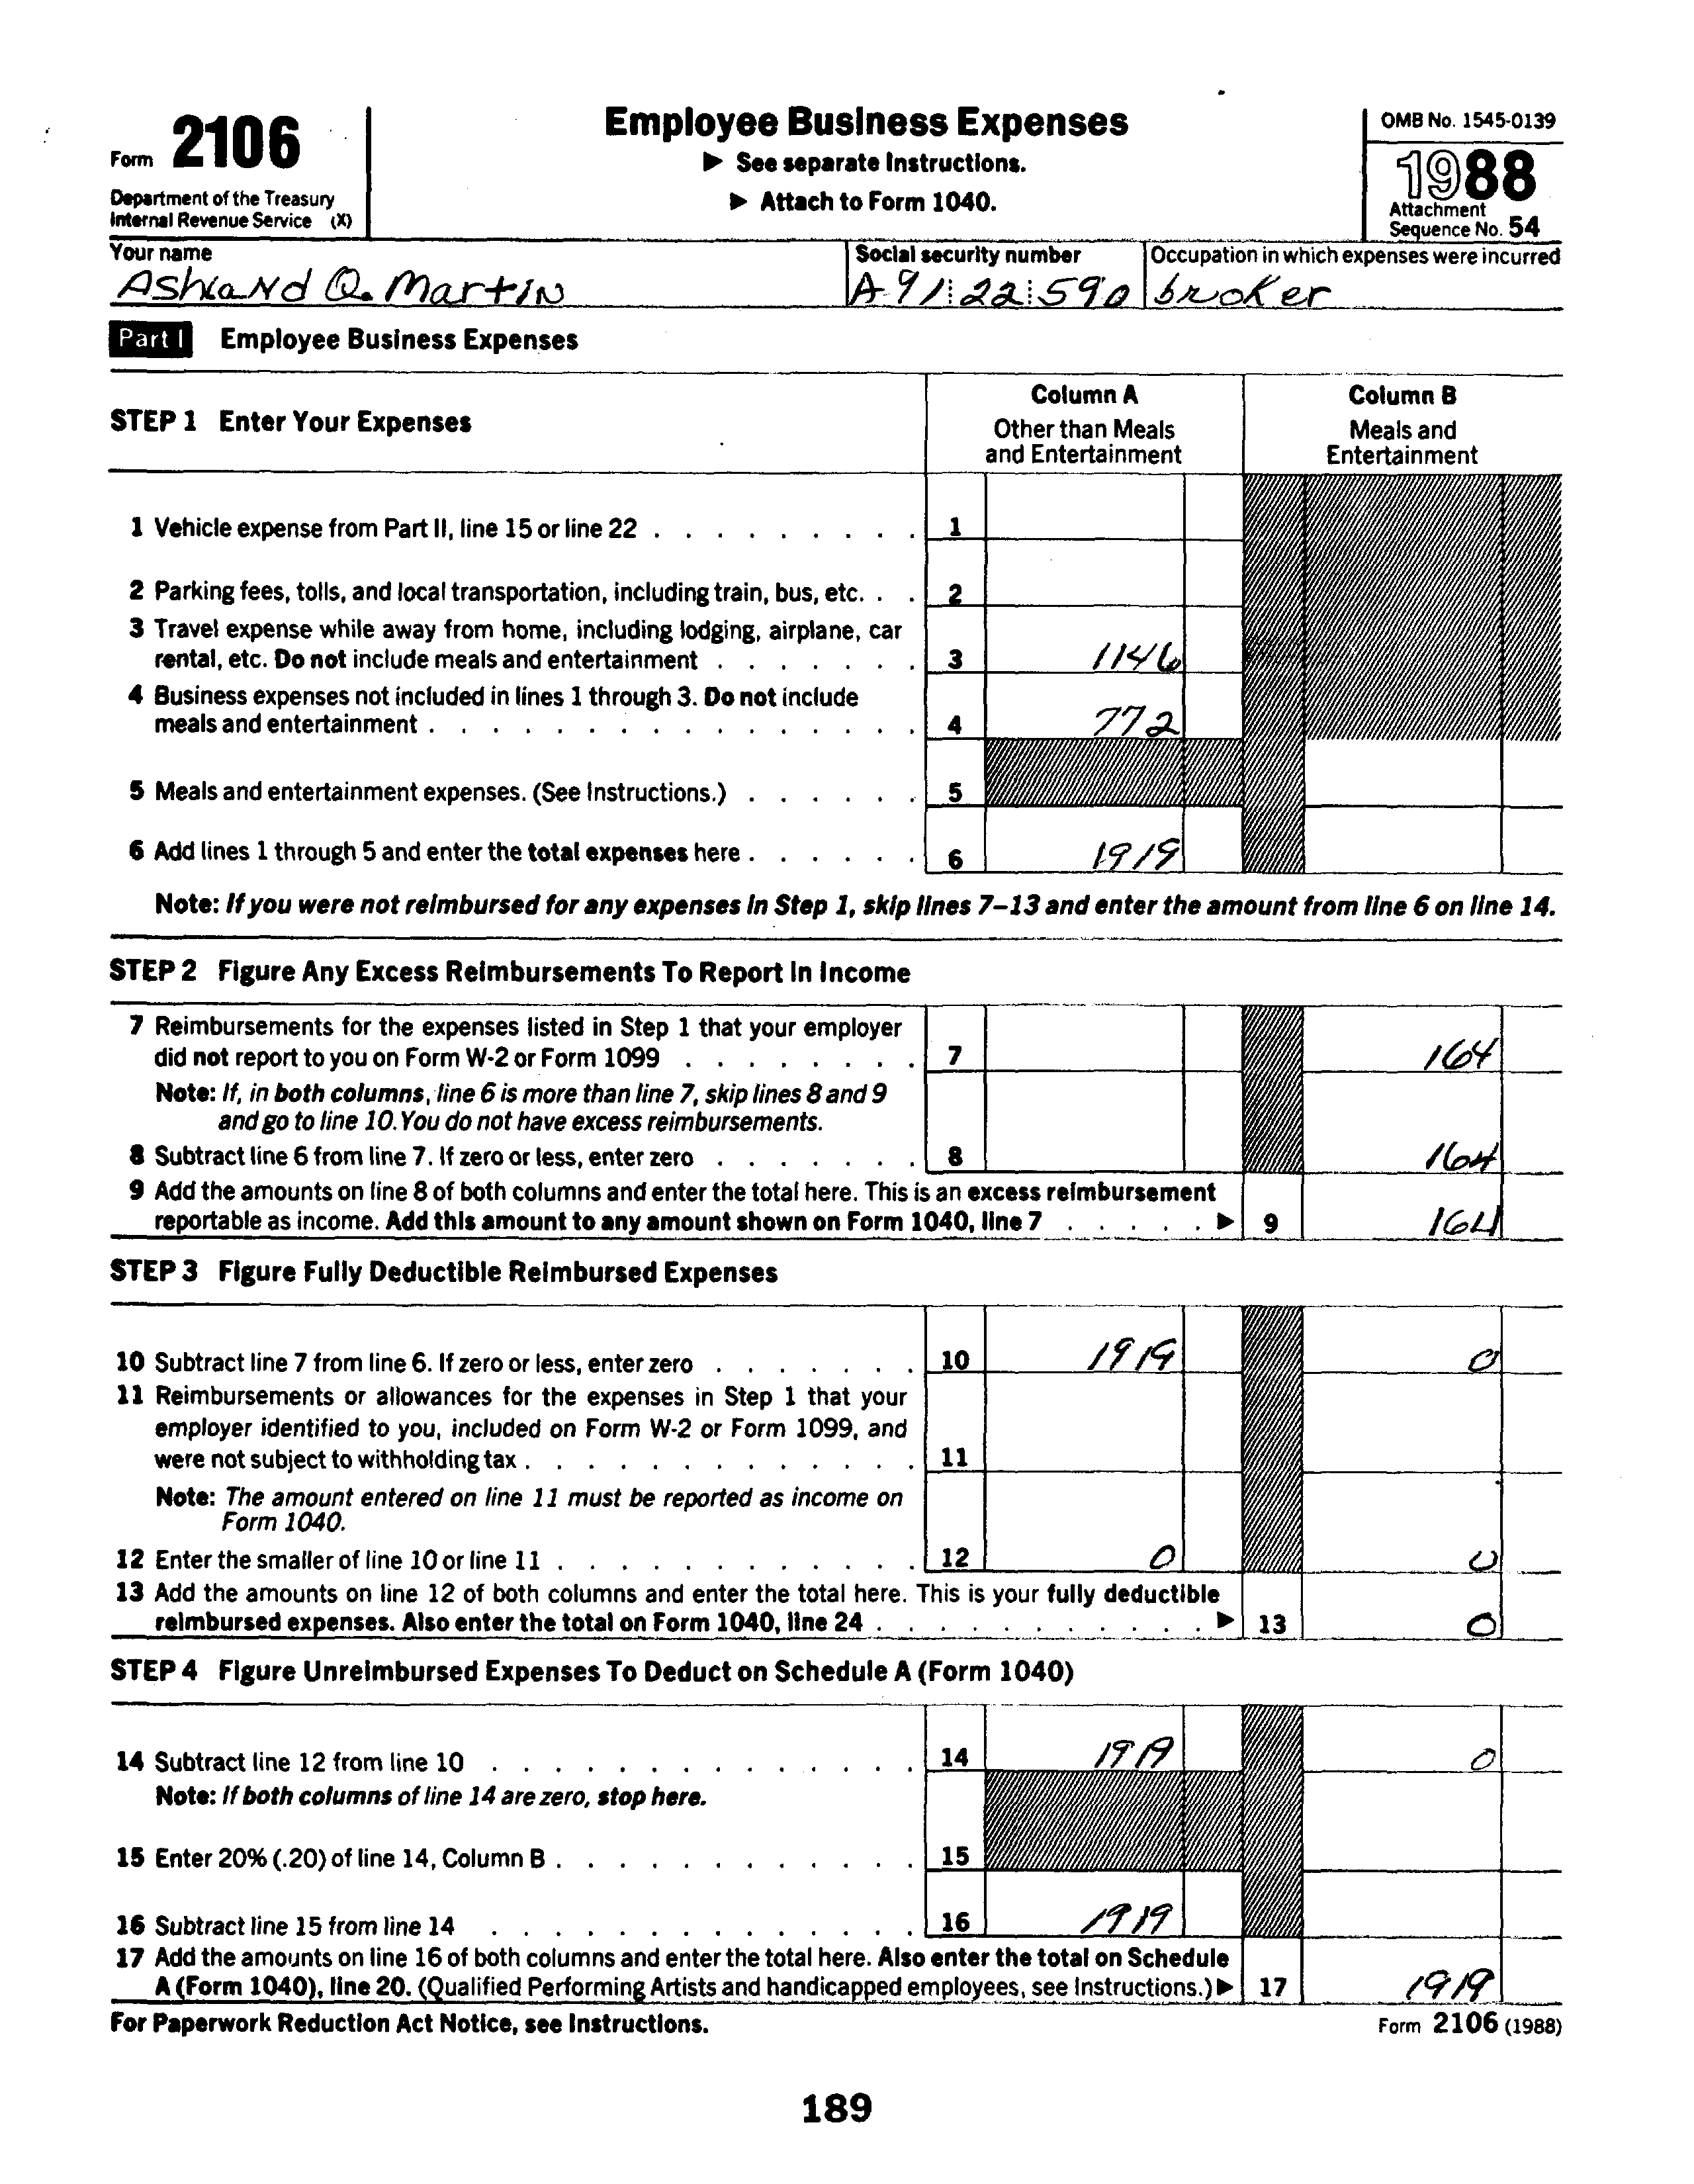 Form 2106
Department of the Treasury
Internal Revenue Service (X)
Employee Business Expenses
▶ See separate Instructions.
▶ Attach to Form 1040.
OMB No. 1545-0139
1988
Attachment
Sequence No. 54
Your name
Ashland Q. Martin
Social security number
A91 22 590
Occupation in which expenses were incurred
broker
Part I Employee Business Expenses
STEP 1 Enter Your Expenses
Column A
Other than Meals
and Entertainment
Column B
Meals and
Entertainment
1 Vehicle expense from Part II, line 15 or line 22 . . . . . . . . . 1
2 Parking fees, tolls, and local transportation, including train, bus, etc. . . 2
3 Travel expense while away from home, including lodging, airplane, car
rental, etc. Do not include meals and entertainment . . . . . . . 3 1146
4 Business expenses not included in lines 1 through 3. Do not include
meals and entertainment . . . . . . . . . . . . . . . . 4 772
5 Meals and entertainment expenses. (See Instructions.) . . . . . . 5
6 Add lines 1 through 5 and enter the total expenses here . . . . . . 6 1919
Note: If you were not reimbursed for any expenses in Step 1, skip lines 7–13 and enter the amount from line 6 on line 14.
STEP 2 Figure Any Excess Reimbursements To Report In Income
7 Reimbursements for the expenses listed in Step 1 that your employer
did not report to you on Form W-2 or Form 1099 . . . . . . . . 7 164
Note: If, in both columns, line 6 is more than line 7, skip lines 8 and 9
and go to line 10. You do not have excess reimbursements.
8 Subtract line 6 from line 7. If zero or less, enter zero . . . . . . . 8 164
9 Add the amounts on line 8 of both columns and enter the total here. This is an excess reimbursement
reportable as income. Add this amount to any amount shown on Form 1040, line 7 . . . . . ▶ 9 164
STEP 3 Figure Fully Deductible Reimbursed Expenses
10 Subtract line 7 from line 6. If zero or less, enter zero . . . . . . . 10 1919 0
11 Reimbursements or allowances for the expenses in Step 1 that your
employer identified to you, included on Form W-2 or Form 1099, and
were not subject to withholding tax . . . . . . . . . . . . . 11
Note: The amount entered on line 11 must be reported as income on
Form 1040.
12 Enter the smaller of line 10 or line 11 . . . . . . . . . . . . 12 0 0
13 Add the amounts on line 12 of both columns and enter the total here. This is your fully deductible
reimbursed expenses. Also enter the total on Form 1040, line 24 . . . . . . . . . . . ▶ 13 0
STEP 4 Figure Unreimbursed Expenses To Deduct on Schedule A (Form 1040)
14 Subtract line 12 from line 10 . . . . . . . . . . . . . . 14 1919 0
Note: If both columns of line 14 are zero, stop here.
15 Enter 20% (.20) of line 14, Column B . . . . . . . . . . . . 15
16 Subtract line 15 from line 14 . . . . . . . . . . . . . . 16 1919
17 Add the amounts on line 16 of both columns and enter the total here. Also enter the total on Schedule
A (Form 1040), line 20. (Qualified Performing Artists and handicapped employees, see Instructions.) ▶ 17 1919
For Paperwork Reduction Act Notice, see Instructions.
Form 2106 (1988)
189